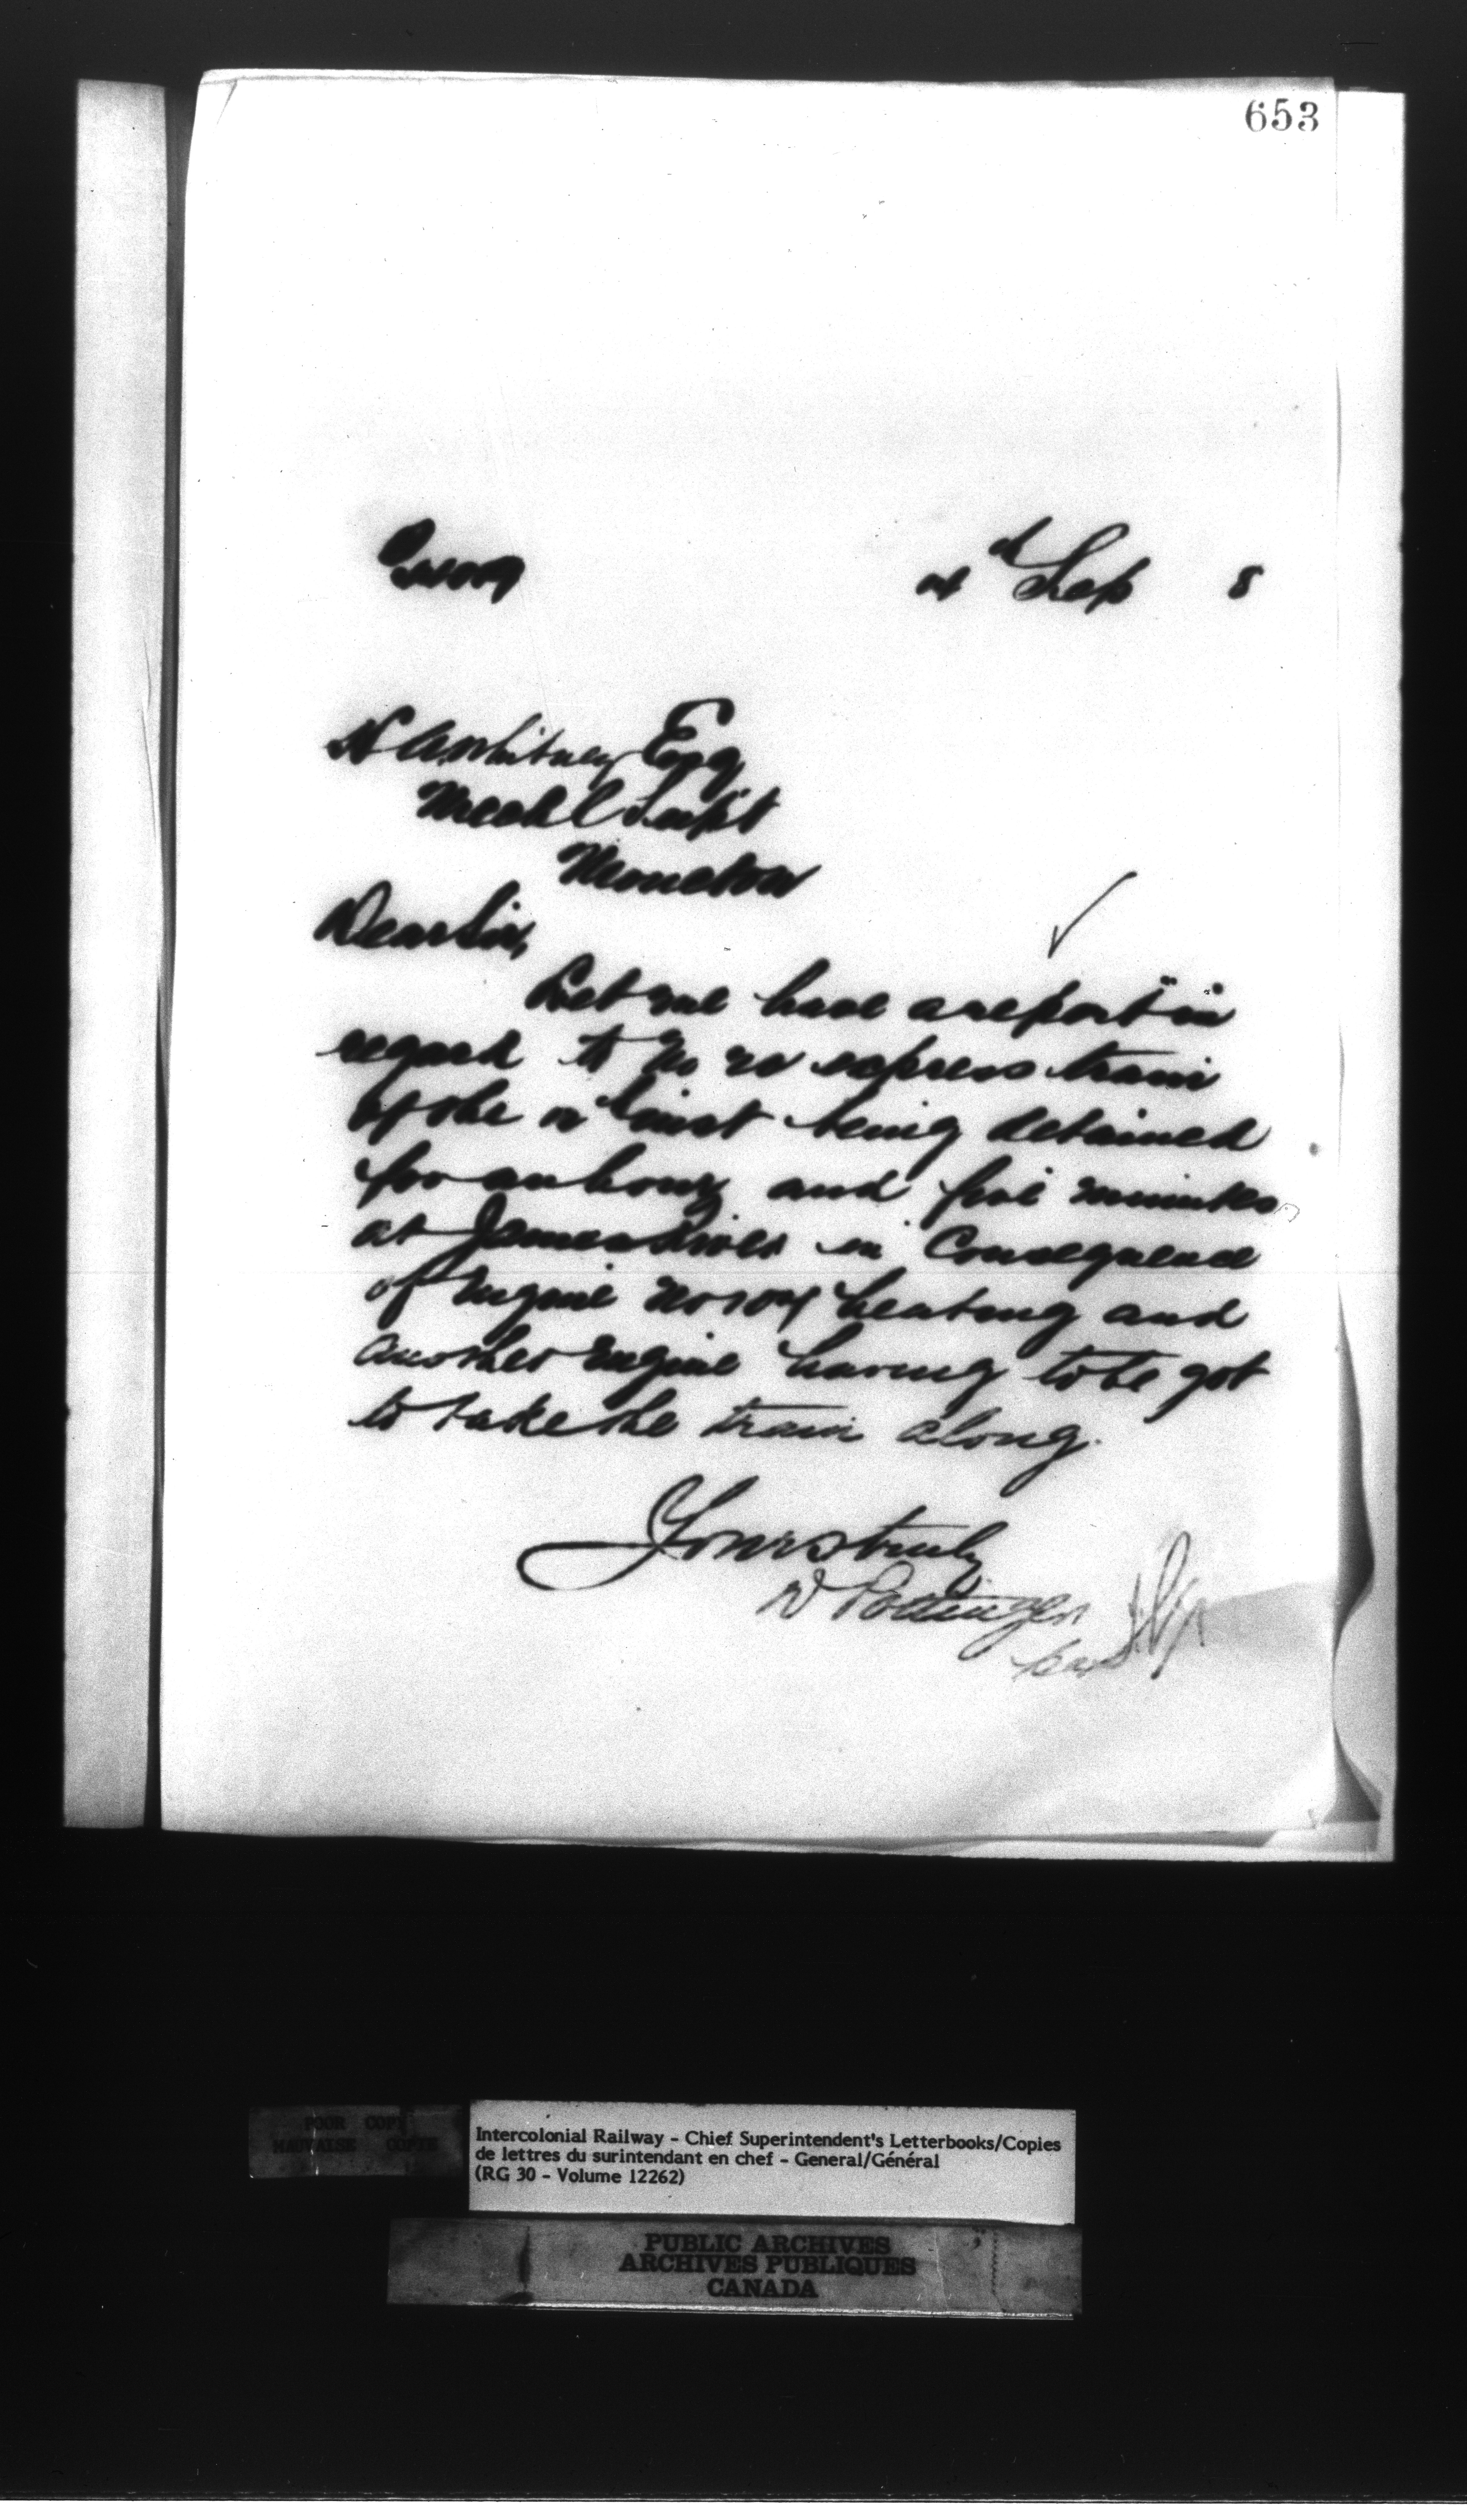 653
Sep 8
H A Whitney Esq
Mechl Supt
Moncton
Dear Sir,
Let me have a report in
regard to No express train
of the inst being detained
for an hour and five minutes
at James River in Consequence
of Engine No heating and
another Engine having to be got
to take the train along.
Yours truly
D Pottinger
per
POOR COPY
MAUVAISE COPIE
Intercolonial Railway - Chief Superintendent's Letterbooks/Copies
de lettres du surintendant en chef - General/Général
(RG 30 - Volume 12262)
PUBLIC ARCHIVES
ARCHIVES PUBLIQUES
CANADA